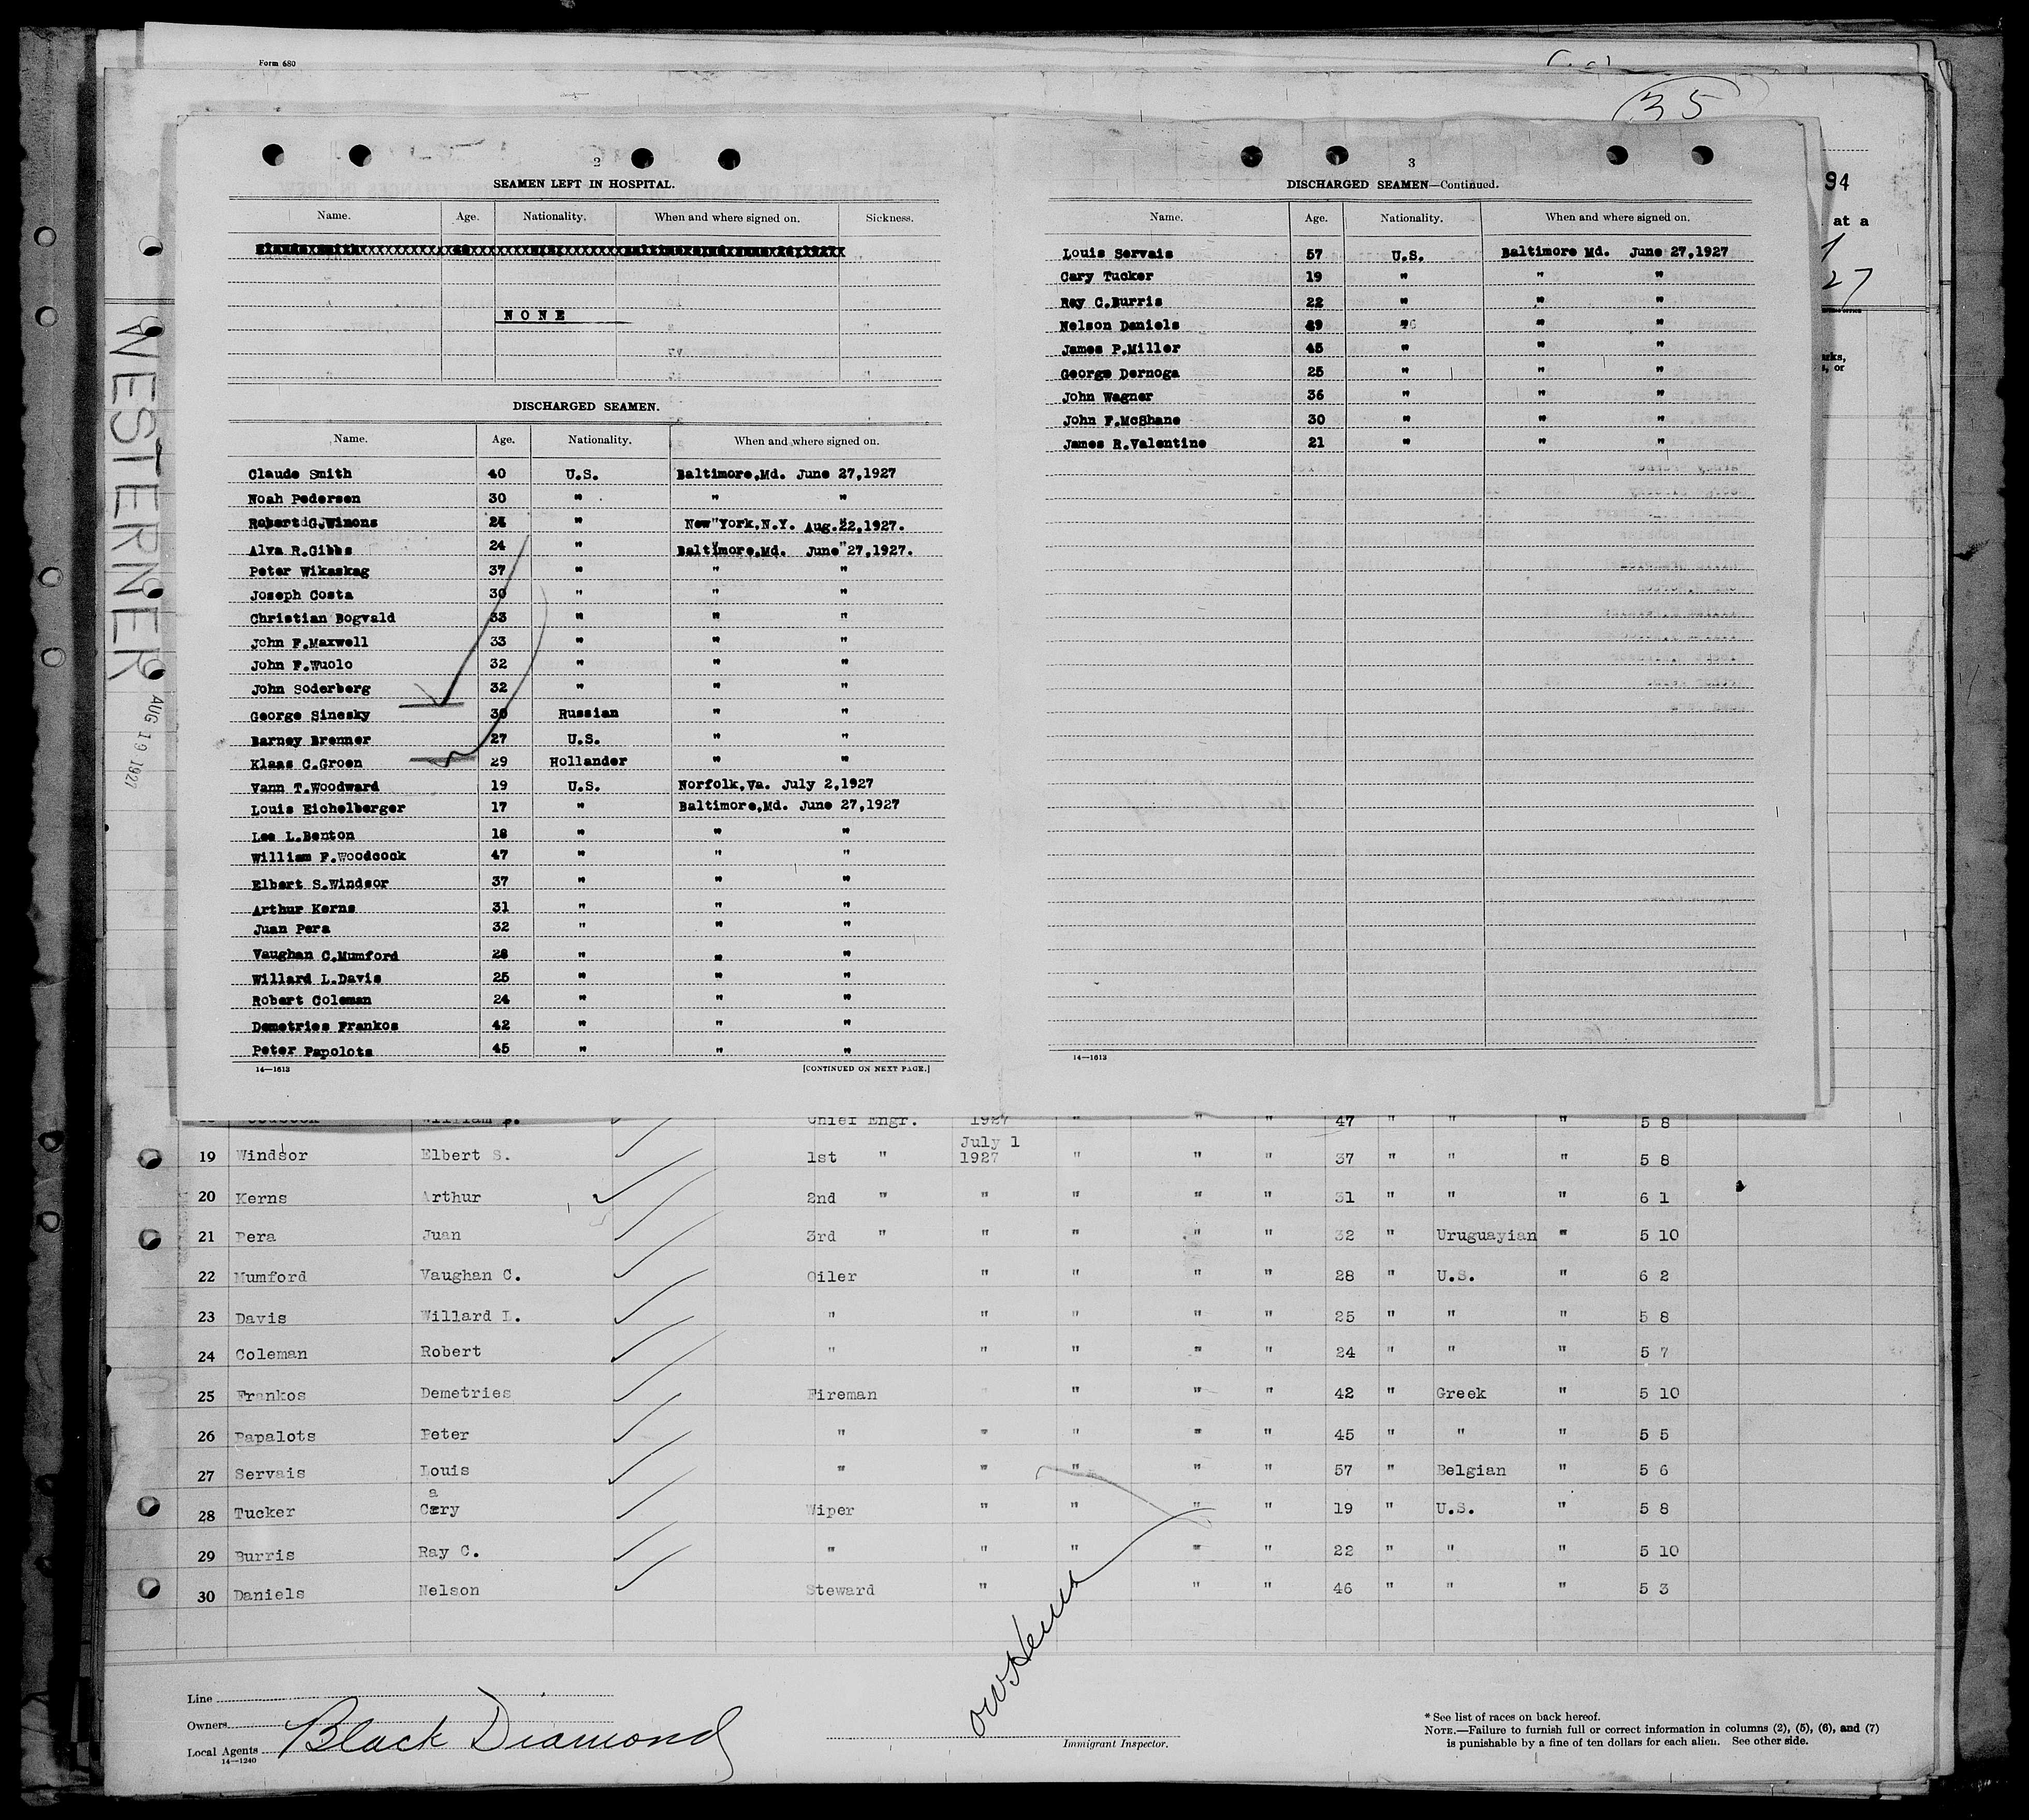 Form 680
35
94
at a
27
arks,
s, or
WESTERNER
AUG 19 1927
2
SEAMEN LEFT IN HOSPITAL.
Name. Age. Nationality. When and where signed on. Sickness.
NONE
DISCHARGED SEAMEN.
Name. Age. Nationality. When and where signed on.
Claude Smith 40 U.S. Baltimore,Md. June 27,1927
Noah Pedersen 30 " " "
Robert G.Winons 24 " New York,N.Y. Aug.22,1927.
Alva R.Gibbs 24 " Baltimore,Md. June 27,1927.
Peter Wikaskag 37 " " "
Joseph Costa 30 " " "
Christian Bogvald 33 " " "
John F.Maxwell 33 " " "
John F.Wuolo 32 " " "
John Soderberg 32 " " "
George Sinesky 30 Russian " "
Barney Brenner 27 U.S. " "
Klaas C.Groen 29 Hollander " "
Vann T.Woodward 19 U.S. Norfolk,Va. July 2,1927
Louis Eichelberger 17 " Baltimore,Md. June 27,1927
Lee L.Benton 18 " " "
William F.Woodcock 47 " " "
Elbert S.Windsor 37 " " "
Arthur Kerns 31 " " "
Juan Pera 32 " " "
Vaughan C.Mumford 28 " " "
Willard L.Davis 25 " " "
Robert Coleman 24 " " "
Demetries Frankos 42 " " "
Peter Papolots 45 " " "
14—1613 [CONTINUED ON NEXT PAGE.]
3
DISCHARGED SEAMEN—Continued.
Name. Age. Nationality. When and where signed on.
Louis Servais 57 U.S. Baltimore Md. June 27,1927
Cary Tucker 19 " " "
Ray C.Burris 22 " " "
Nelson Daniels 49 " " "
James P.Miller 45 " " "
George Dernoga 25 " " "
John Wagner 36 " " "
John F.McShane 30 " " "
James R.Valentine 21 " " "
14—1613
Woodcock William F. Chief Engr. 1927 " " " 47 " " " 5 8
19 Windsor Elbert S. 1st " July 1 1927 " " " 37 " " " 5 8
20 Kerns Arthur 2nd " " " " " 31 " " " 6 1
21 Pera Juan 3rd " " " " " 32 " Uruguayian " 5 10
22 Mumford Vaughan C. Oiler " " " " 28 " U.S. " 6 2
23 Davis Willard L. " " " " " 25 " " " 5 8
24 Coleman Robert " " " " " 24 " " " 5 7
25 Frankos Demetries Fireman " " " 42 " Greek " 5 10
26 Papalots Peter " " " " " 45 " " " 5 5
27 Servais Louis " " " " " 57 " Belgian " 5 6
a
28 Tucker Cery Wiper " " " " 19 " U.S. " 5 8
29 Burris Ray C. " " " " " 22 " " " 5 10
30 Daniels Nelson Steward " " " 46 " " " 5 3
Line
Owners
Local Agents Black Diamond
14—1240
Immigrant Inspector.
* See list of races on back hereof.
NOTE.—Failure to furnish full or correct information in columns (2), (5), (6), and (7)
is punishable by a fine of ten dollars for each alien. See other side.